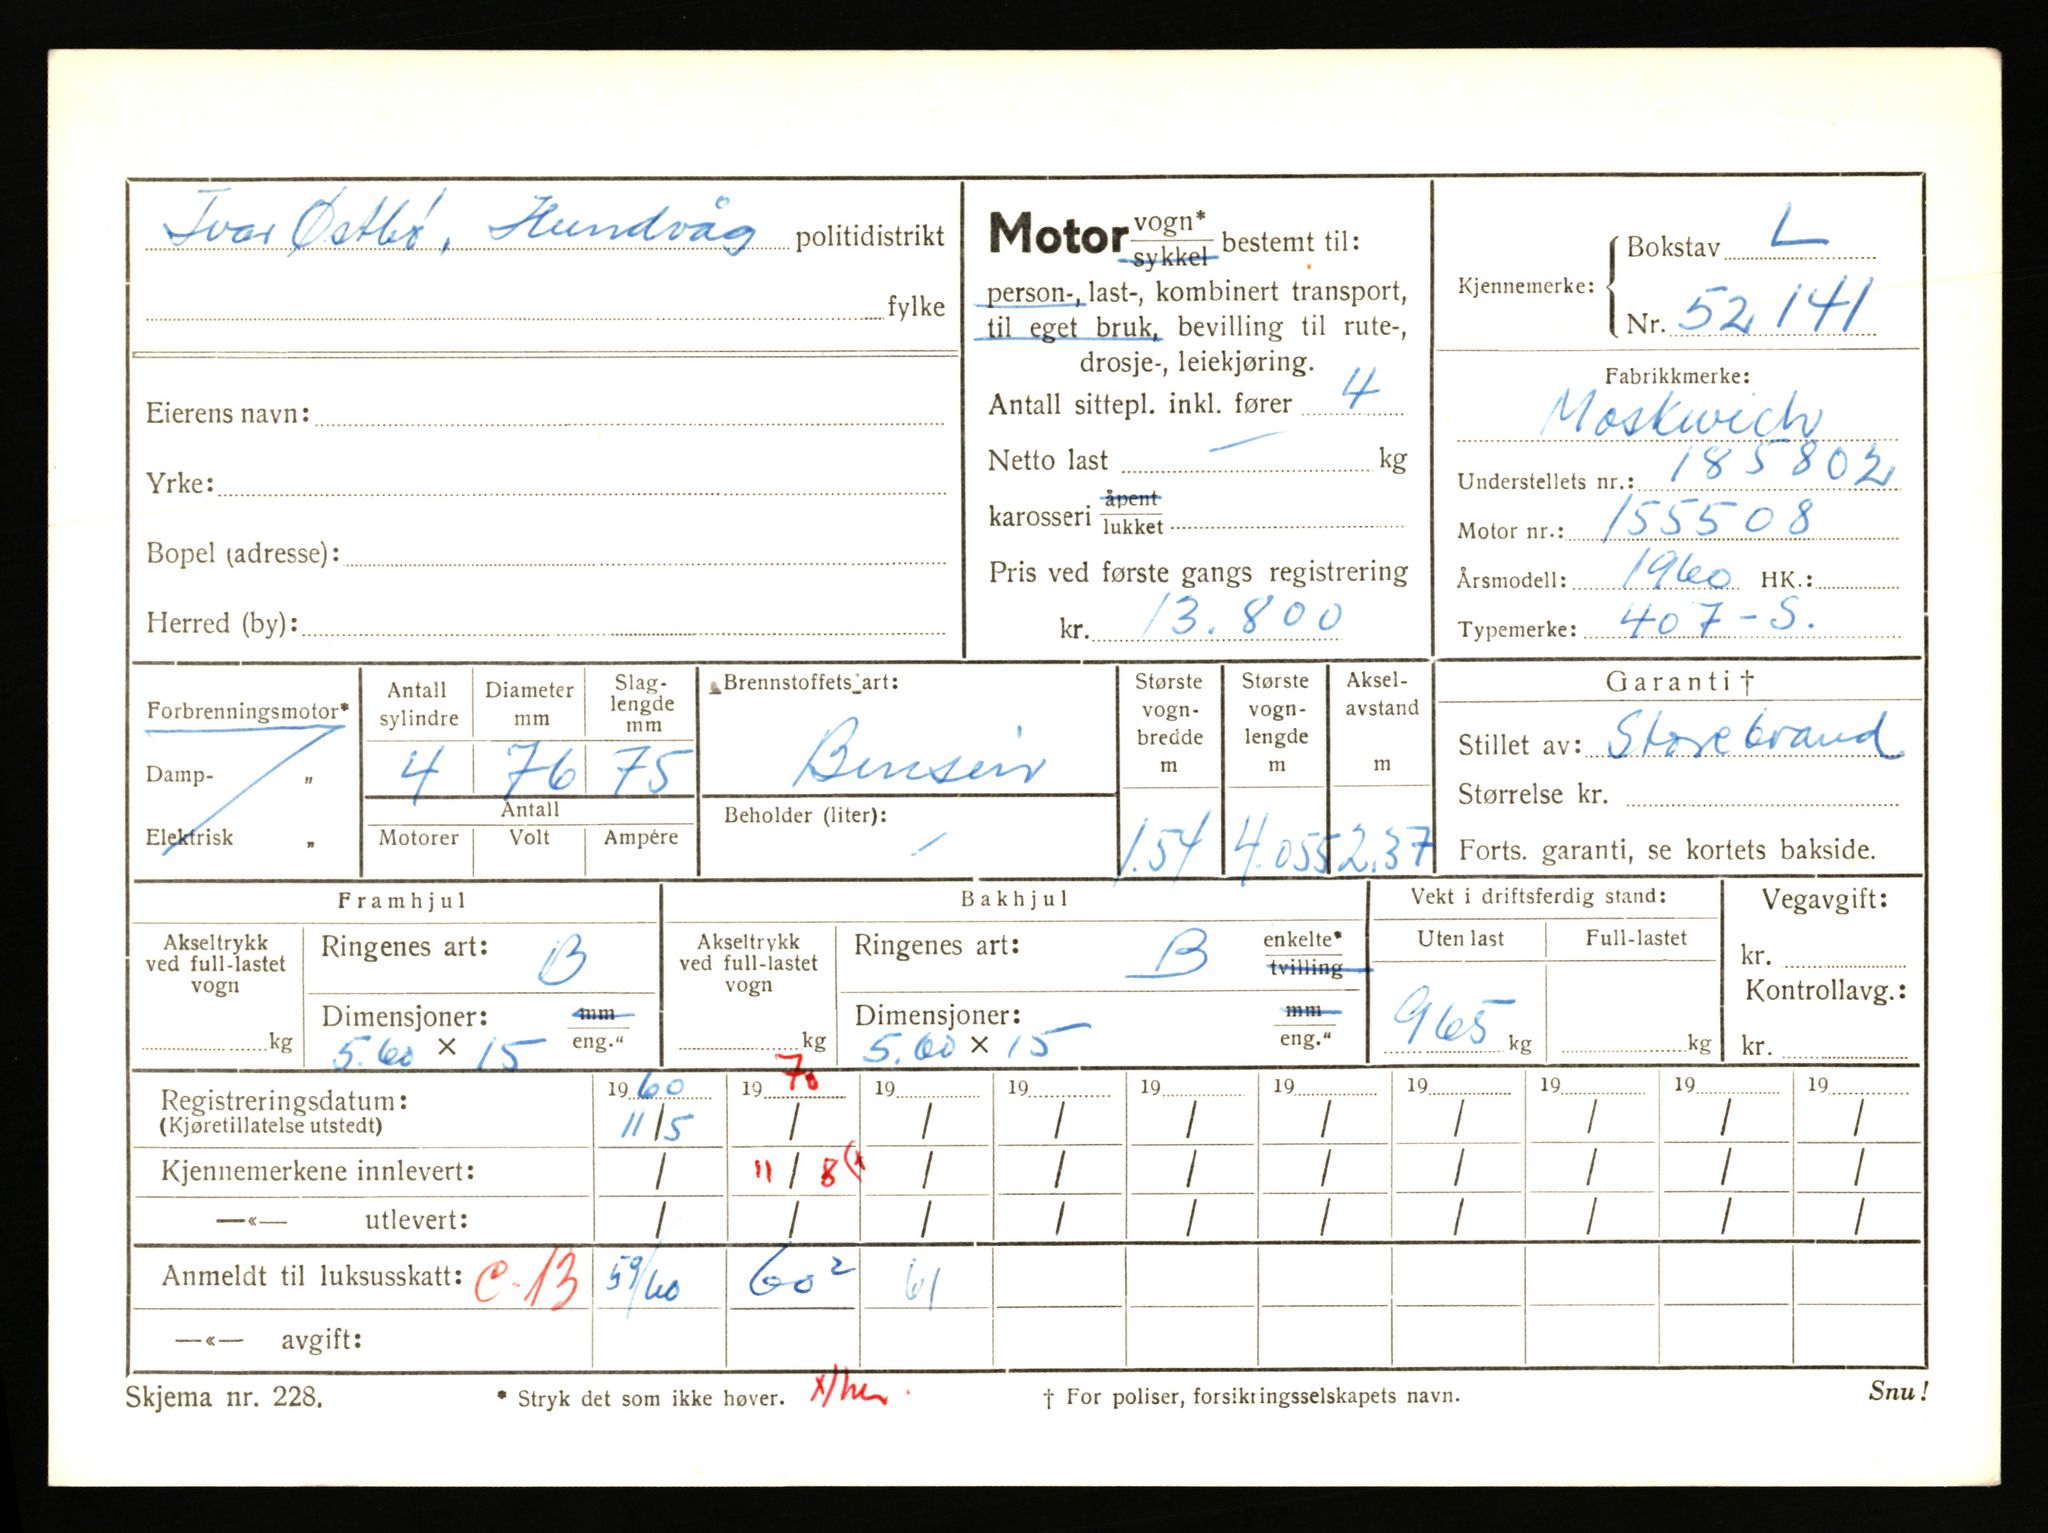 Ivar Østbø, Hundvåg politidistrikt
fylke
Eierens navn:
Yrke:
Bopel (adresse):
Herred (by):
Motor vogn* sykkel bestemt til:
person-, last-, kombinert transport,
til eget bruk, bevilling til rute-,
drosje-, leiekjøring.
Antall sittepl. inkl. fører 4
Netto last — kg
karosseri åpent lukket
Pris ved første gangs registrering
kr. 13.800
Kjennemerke: Bokstav L
Nr. 52141
Fabrikkmerke:
Moskwich
Understellets nr.: 185802
Motor nr.: 155508
Årsmodell: 1960 HK.:
Typemerke: 407-S.
Forbrenningsmotor*
Damp- „
Elektrisk „
Antall sylindre
4
Diameter mm
76
Slag-lengde mm
75
Antall
Motorer Volt Ampére
Brennstoffets art:
Bensin
Beholder (liter): /
Største vogn-bredde m
1.54
Største vogn-lengde m
4.055
Aksel-avstand m
2.37
Garanti †
Stillet av: Storebrand
Størrelse kr.
Forts. garanti, se kortets bakside.
Framhjul
Akseltrykk ved full-lastet vogn
kg
Ringenes art: B
Dimensjoner: mm eng."
5.60 × 15
Bakhjul
Akseltrykk ved full-lastet vogn
kg
Ringenes art: B enkelte* tvilling
Dimensjoner: mm eng."
5.60 × 15
Vekt i driftsferdig stand:
Uten last Full-lastet
965 kg kg
Vegavgift:
kr.
Kontrollavg.:
kr.
Registreringsdatum: 1960 1970 19 19 19 19 19 19 19 19
(Kjøretillatelse utstedt) 11/5 / / / / / / / / /
Kjennemerkene innlevert: / 11/8 (x / / / / / / / /
—«— utlevert: / / / / / / / / / /
Anmeldt til luksusskatt: C-13 59/60 60² 61
—«— avgift:
Skjema nr. 228. * Stryk det som ikke høver. † For poliser, forsikringsselskapets navn. Snu!